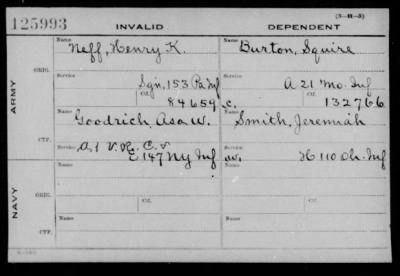 (3-H-3)
125993 INVALID DEPENDENT
ARMY
ORIG.
Name Neff, Henry K. Name Burton, Squire
Service Sgn, 153 Pa Inf Service A 21 Mo. Inf
Cf. 84659 Cf. 132766
CTF.
Name Goodrich, Asa W. Name Smith, Jeremiah
Service A, 1 V. R. C. &
E 147 Ny Inf H 110 Oh. Inf
NAVY
ORIG.
Name Name
Service Cf. Service Cf.
CTF.
Name Name
Service Service